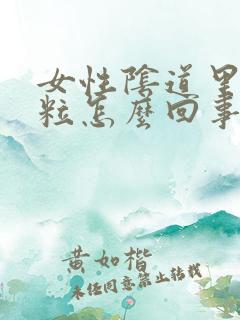 女性陰道里
粒怎麼回事
黄如楷
未经同意禁止转载